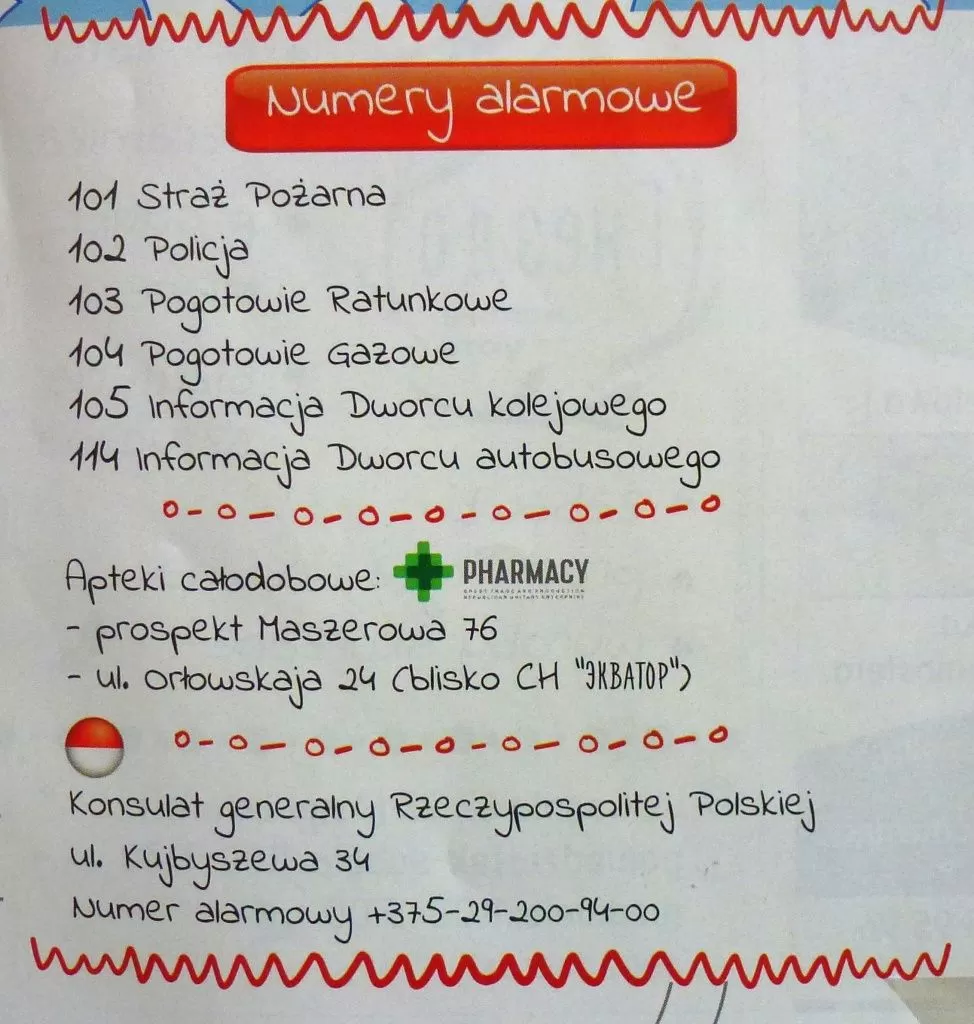 Numery alarmowe
101 Straż Pożarna
102 Policja
103 Pogotowie Ratunkowe
104 Pogotowie Gazowe
105 Informacja Dworcu kolejowego
114 Informacja Dworcu autobusowego
Apteki całodobowe: PHARMACY
- prospekt Maszerowa 76
- ul. Orłowskaja 24 (blisko CH "ЭКВАТОР")
Konsulat generalny Rzeczypospolitej Polskiej
ul. Kujbyszewa 34
Numer alarmowy +375-29-200-94-00